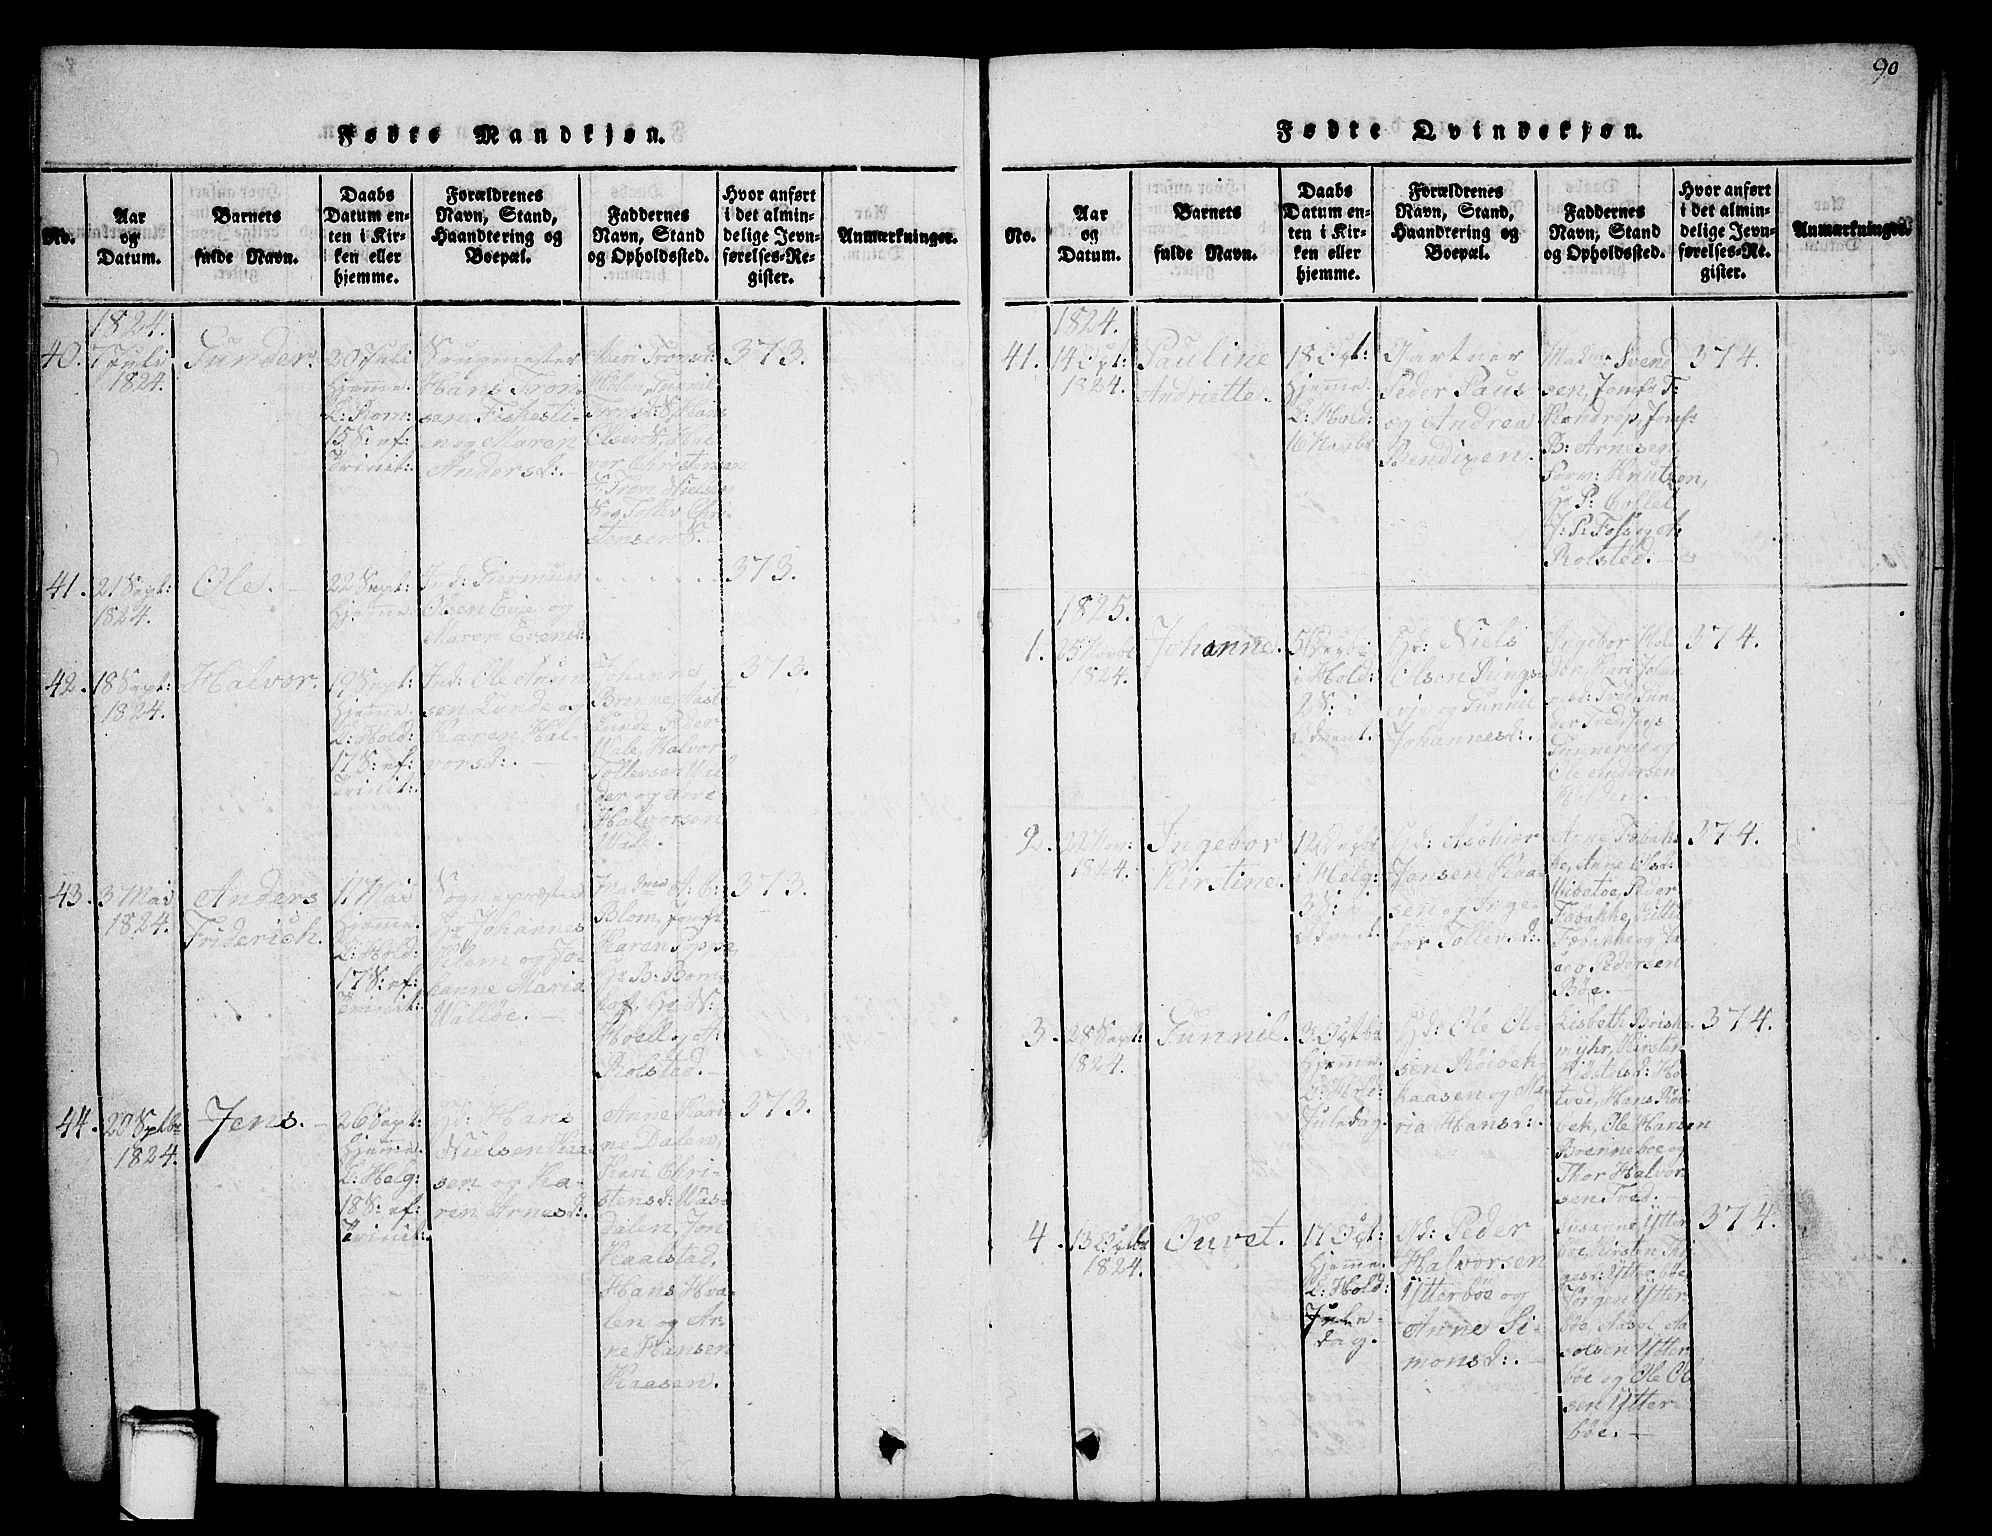 90
Fødte Mandkjøn.
No.
Aar
og
Datum.
Barnets
fulde Navn.
Daabs
Datum en-
ten i Kir-
ken eller
hjemme.
Forældrenes
Navn, Stand,
Haandtering og
Boepæl.
Faddernes
Navn, Stand
og Opholdssted.
Hvor anført
i det almin-
delige Jevn-
førelses-Re-
gister.
Anmærkninger.
1824.
40.
7 Juli
1824.
Gunder.
20 Juli
hjemme.
C: Rom:
15 S: ef:
Trinit:
Hans Tron
sen Fishesti-
en og Maren
Andersd: -
Mari Tronsd:
Olsen S, Hal
vor Christensen
F, Tron Nielsen
S og Tollev Chri-
stensen S. -
373.
41.
21 Sept:
1824.
Ole. -
22 Sept:
hjemme
Ind: Giermun
Olsen Eeje og
Maren Evensd:
. . . . .
373.
42.
18 Sept:
1824.
Halvor.
19 Sept:
hjemme.
C: Hold:
17 S: ef:
Trinit:
Ind: Ole Amun
sen Lunde og
Karen Hal-
vorsd: -
Johanne
Brenne, Aast
Lunde, Peder
Wale, Halvor
Tollevsen Wil
der og Arve
Halvorsen
Wale. -
373.
43.
3 Mai
1824.
Anders
Friderich.
11 Mai
hjemme.
C: Hold:
17 S: ef:
Trinit:
Sognepræsten
Hr Johannes
Klem og Jo-
hanne Maria
Walløe. -
Madme A: C:
Blom, Jomfr
Karen Cyppe,
Hr B: Bom-
hof, Hr N:
Hoell og A:
Rolstad. -
373.
44.
20 Septbr
1824.
Jens. -
26 Sept:
hjemme.
C: Helg:
18 S: ef:
Trinit:
Gd: Hans
Nielsen Kaa-
sen og Ka-
ren Arnesd:
Anne Kari
ne Dalen,
Kari Chri-
stensd: Was-
Dalen, Jon
Kaalstad,
Hans Hva-
len og An-
ne Hansen
Kaasen.
373.
Fødte Qvindekjøn.
No.
Aar
og
Datum.
Barnets
fulde Navn.
Daabs
Datum en-
ten i Kir-
ken eller
hjemme.
Forældrenes
Navn, Stand,
Haandtering og
Boepæl.
Faddernes
Navn, Stand
og Opholdssted.
Hvor anført
i det almin-
delige Jevn-
førelses-Re-
gister.
Anmærkninger.
1824.
41.
14 Oct:
1824.
Pauline
Andriette.
18 Oct:
hjemme.
C: Hold:
16 Novbr
Gartner
Peder Paus
og Andrea
Bendixen.
Madme Svend
sen, Jomfr T:
Rondrop, Jomfr
B: Arnesen,
Sorn: Knutzen,
Hr P: Collet
J: P: Fosse et
Rolsted. -
374.
1825.
1.
25 Novbr
1824.
Johanne.
5 Decbr
i Hold:
2 S: i
Advent.
Gd: Niels
Olsen Rings-
evje og Gunnil
Johannesd:
Ingebor Hol
den, Kari Johan
nesd: Tved, Gun
der Tvedtens
Gunnerøe og
Ole Andersen
Holden. -
374.
2.
22 Nov:
1824.
Ingebor
Kirstine.
12 Decbr
i Helg:
3 S: i
Advent.
Gd: Aschier
Jansen Kaa-
sen og Inge-
bor Tollevsd:
Anne Fæbak-
ke, Anne Olsd:
Wibetoe, Peder
Fæbakke, Kittil
Fæbakke og Ja-
cob Pedersen
Bøe. -
374.
3.
28 Sept:
1824.
Gunnil.
3 Octbr
hjemme.
C: Hold:
Juledag.
Gd: Ole Ol-
sen Røivek-
kaasen og Ma-
ria Hansd:
Lisbeth Briske
myhr, Kirsten
Kiøstensd: Ho-
tved, Hans Røi-
vek, Ole Hansen
Brenneboe og
Thor Halvor-
sen Tved. -
374.
4.
13 Octbr
1824.
Guret.
17 Oct:
hjemme.
C: Hold:
Jule-
dag.
Gd: Peder
Halvorsen
Ytterbøe og
Anne Si-
monsd: -
Susanne Ytter
bøe, Kirsten Tho
gesd: Ytterbøe,
Jørgen Ytter-
bøe, Aasol, Aa-
solsen Ytter
bøe og Ole Ol
sen Ytter
bøe. -
374.